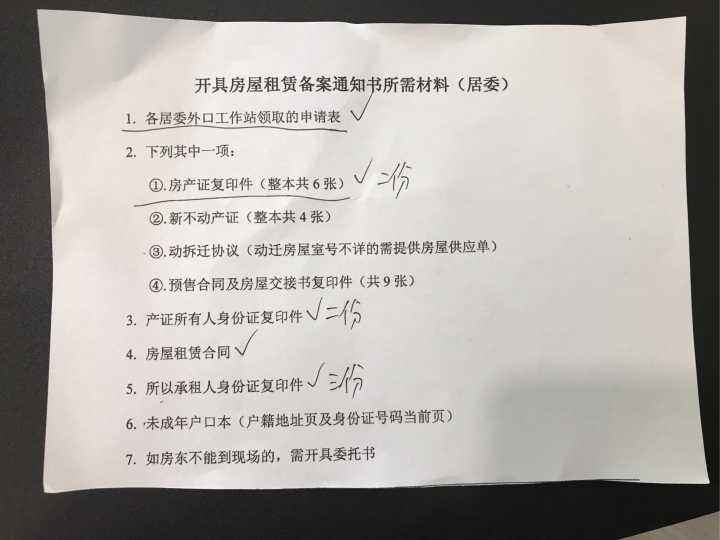 开具房屋租赁备案通知书所需材料（居委）
1. 各居委外口工作站领取的申请表 ✓
2. 下列其中一项：
①.房产证复印件（整本共 6 张）✓ 二份
②.新不动产证（整本共 4 张）
③.动拆迁协议（动迁房屋室号不详的需提供房屋供应单）
④.预售合同及房屋交接书复印件（共 9 张）
3. 产证所有人身份证复印件 ✓ 二份
4. 房屋租赁合同 ✓
5. 所以承租人身份证复印件 ✓ 三份
6. 未成年户口本（户籍地址页及身份证号码当前页）
7. 如房东不能到现场的，需开具委托书